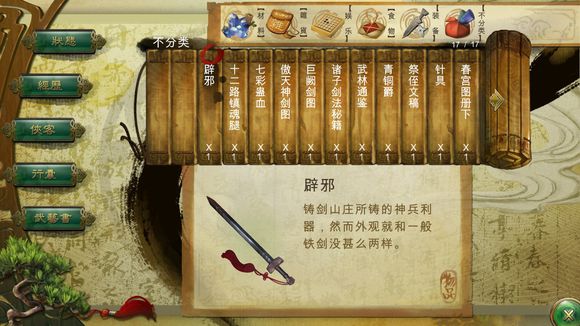 材料
雜貨
娱乐
食物
装备
不分类
17 / 17
不分类
狀態
經歷
俠客
行囊
武藝書
辟邪
x1
十二路镇魂腿
x1
七彩蛊血
x1
傲天神剑图
x1
巨阙剑图
x1
诸子剑法秘籍
x1
武林通鉴
x1
青铜爵
x1
祭侄文稿
x1
针具
x1
春宫图册下
x1
辟邪
铸剑山庄所铸的神兵利
器，然而外观就和一般
铁剑没甚么两样。
物品